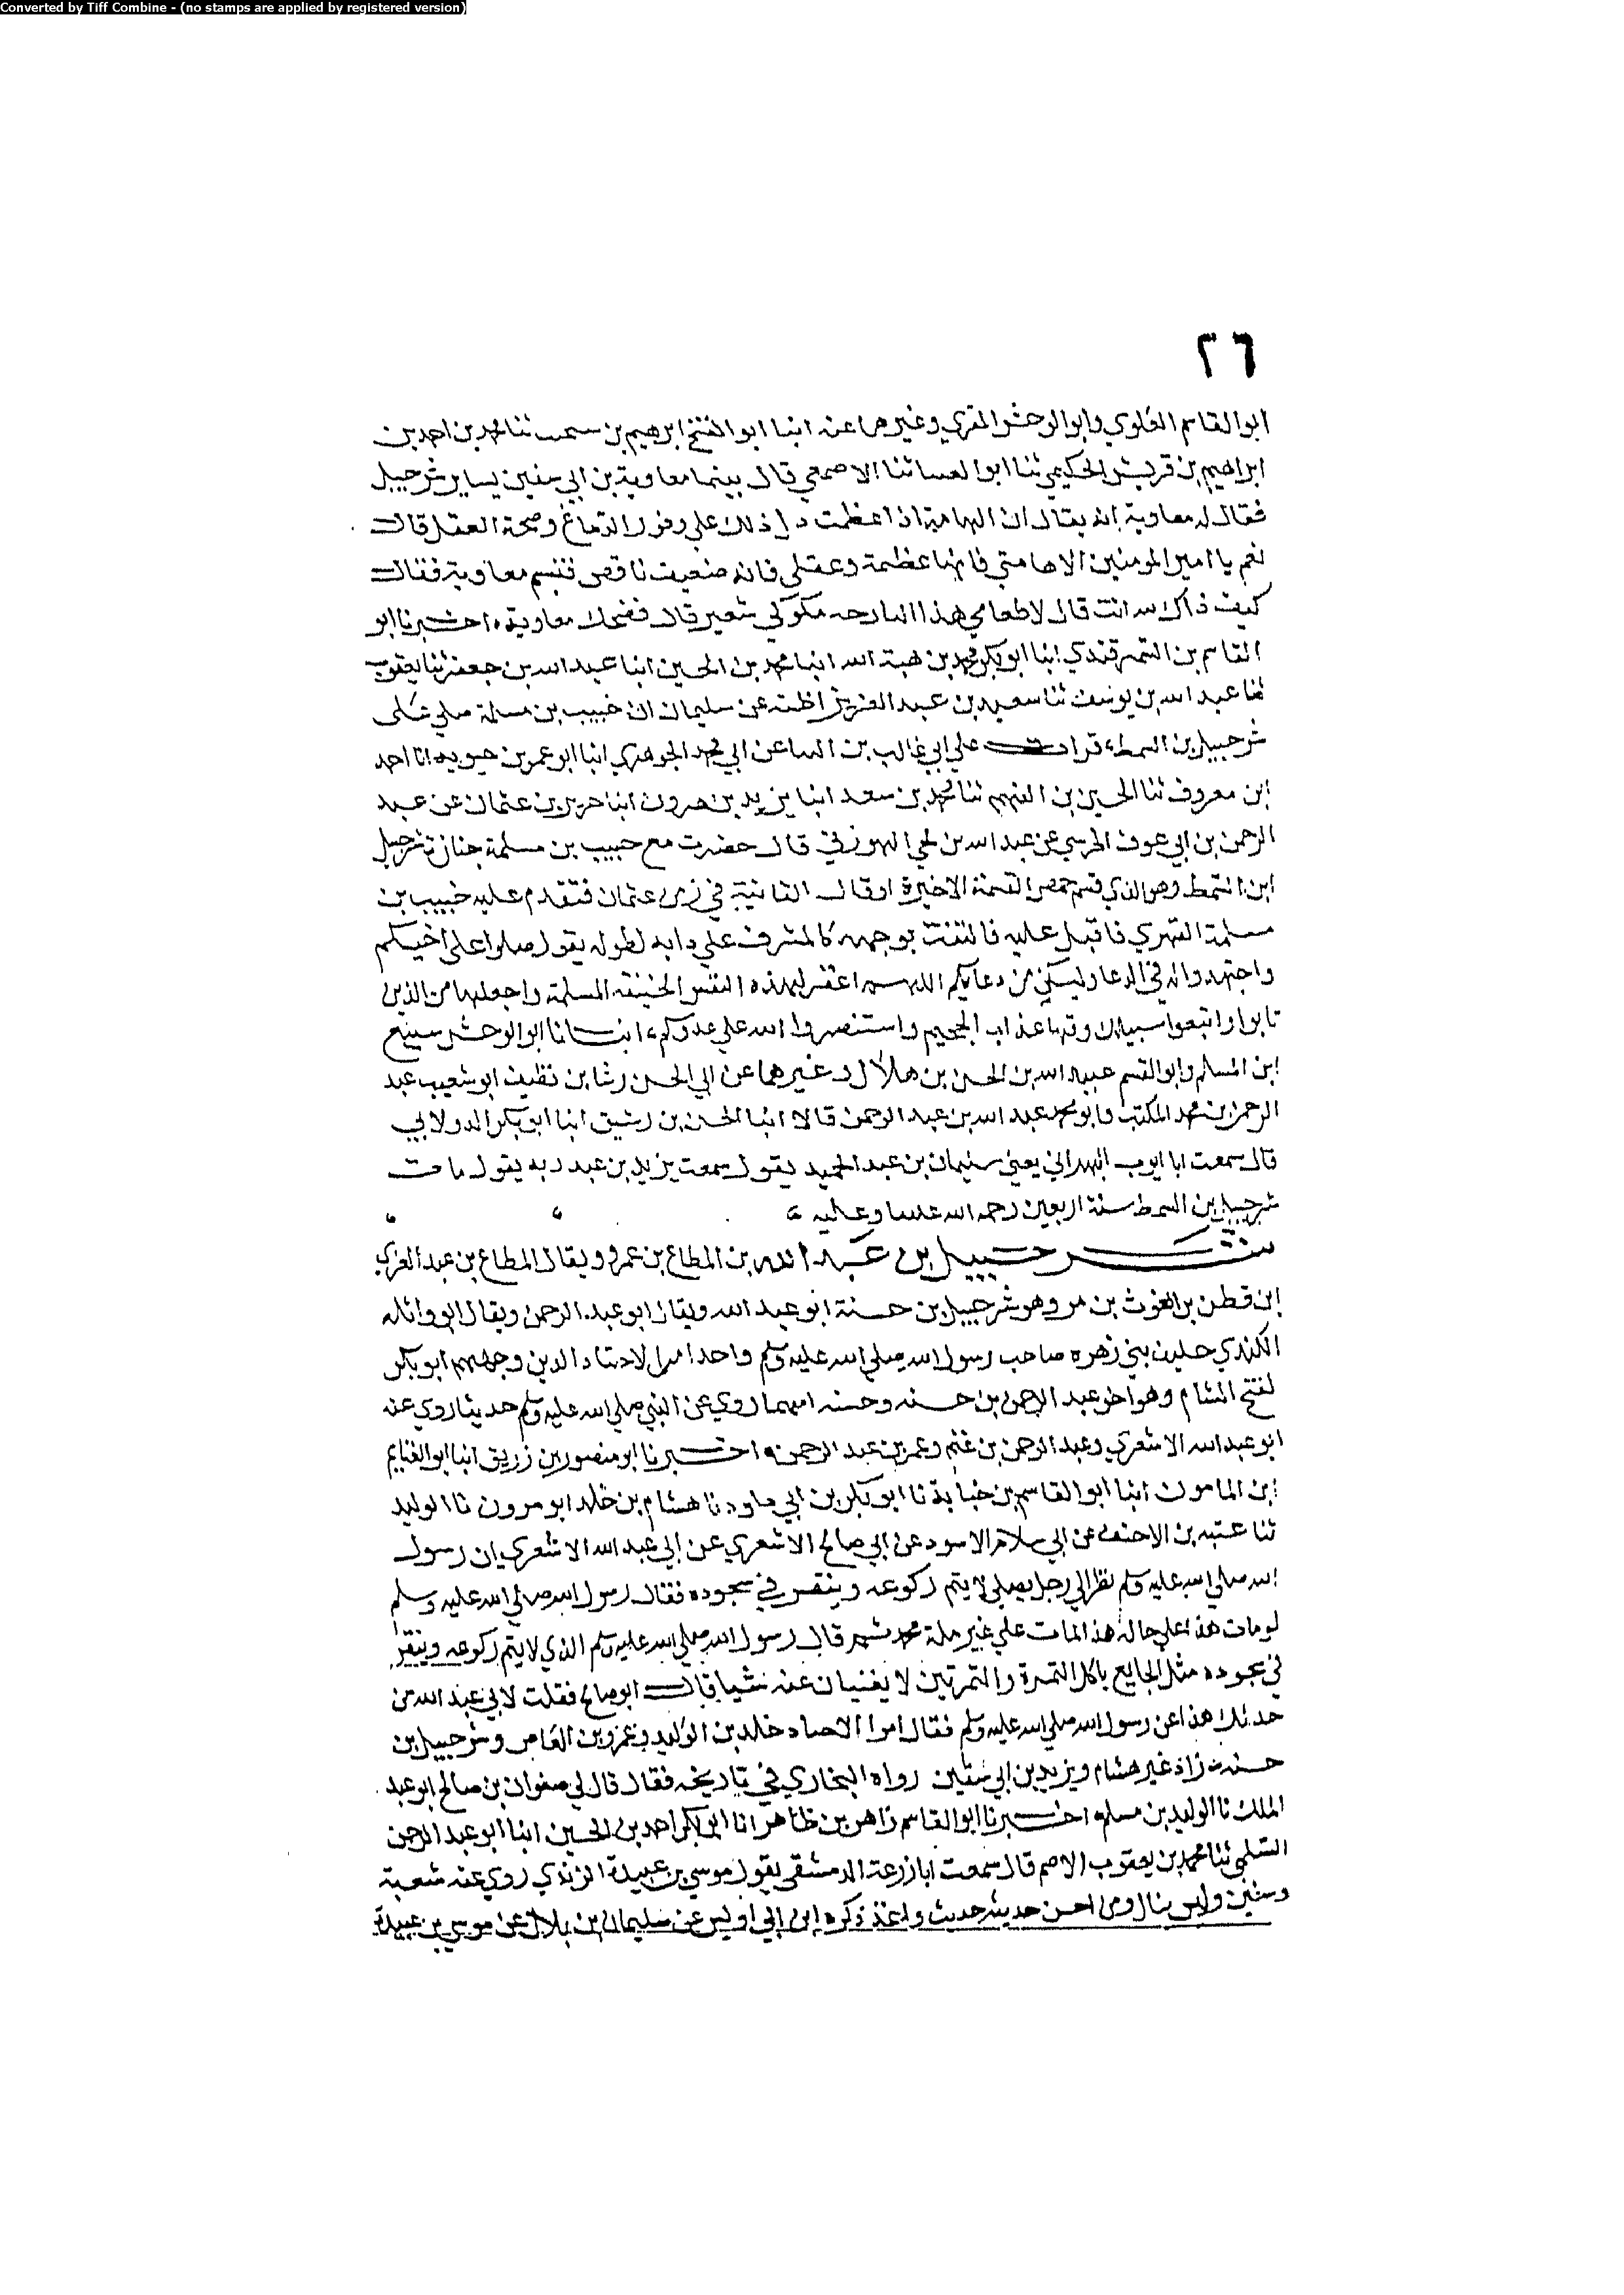 Converted by Tiff Combine - (no stamps are applied by registered version)
٢٦
ابو القاسم العلوي وابو الوحش المقري وغيرهما عنه انبا ابو الفتح ابرهيم بن ثنا محمد بن احمد بن
ابراهيم بن قريش الحكيمي ثنا ابو العسا ثنا الاصمعي قال بينما معاوية بن ابي سفين يساير شرحبيل
فقال له معاوية انه يقال ان الهامة اذا عظمت دل ذلك على وفور الدماغ وصحة العقل قال
نعم يا امير المومنين الا هامتي فانها عظمة وعقلي فانه ضعيف ناقص فتبسم معاوية فقال
كيف ذاك لله انت قال لاطعامي هذا البارحه مكوكي شعير قال فضحك معاوية اخبرنا ابو
القاسم بن السمرقندي انبا ابو بكر محمد بن هبة الله انبا محمد بن الحسين انبا عبد الله بن جعفر ثنا يعقوب
ثنا عبد الله بن يوسف ثنا سعيد بن عبد العزيز اظنه عن سليمان ان حبيب بن مسلمة صلي على
شرحبيل بن السمط قرات علي ابي غالب بن البنا عن ابي محمد الجوهري انبا ابو عمر بن حيويه انا احمد
ابن معروف ثنا الحسين بن الفهم ثنا محمد بن سعد انبا يزيد بن هرون انبا حريز بن عثمان عن عبد
الرحمن بن ابي عوف الجرسي عن عبد الله بن لحي الهوزني قال حضرت مع حبيب بن مسلمة جنازة شرحبيل
ابن السمط وهو الذي قسم حمص القسمة الاخيرة او قال الثانية في زمن عثمان فتقدم عليه حبيب بن
مسلمة الفهري فاقبل عليه فالتفت بوجهه كالمشرف علي دابه لطوله يقول صلوا على اخيكم
واجتهدوا له في الدعا وليكن من دعايكم اللهم اغفر لهذه النفس الحنيفه المسلمة واجعلها من الذين
تابوا واتبعوا سبيلك وقها عذاب الجحيم واستنصروا الله علي عدوكم انبانا ابو الوحش سبيع
ابن المسلم وابو القسم عبيد الله بن الحسن بن هلال وغيرهما عن ابي الحسن رشا بن نظيف ابو شعيب عبد
الرحمن بن محمد المكتب وابو محمد عبد الله بن عبد الرحمن قالا انبا الحسن بن رشيق انبا ابو بكر الدولابي
قال سمعت ابا ايوب البهراني يعني سليمان بن عبد الحميد يقول سمعت يزيد بن عبد ربه يقول مات
شرحبيل بن السمط سنة اربعين رحمه الله علينا وعليه
شرحبيل بن عبد الله بن المطاع بن عمرو ويقال المطاع بن عبد العزي
ابن قطن بن الغوث بن مر وهو شرحبيل بن حسنة ابو عبد الله ويقال ابو عبد الرحمن ويقال ابو واثله
الكندي حليف بني زهره صاحب رسول الله صلي الله عليه وسلم واحد امرا الاجناد الذين وجههم ابو بكر
لفتح الشام وهو اخو عبد الرحمن بن حسنه وحسنه امهما روي عن النبي صلي الله عليه وسلم حديثا روي عنه
ابو عبد الله الاشعري وعبد الرحمن بن غنم وعمر بن عبد الرحمن اخبرنا ابو منصور بن زريق انبا ابو الغنايم
ابن المامون انبا ابو القاسم بن حبابة نا ابو بكر بن ابي داود نا هشام بن خالد ابو مرون نا الوليد
ثنا عتبه بن الاحنف عن ابي سلام الاسود عن ابي صالح الاشعري عن ابي عبد الله الاشعري ان رسول
الله صلي الله عليه وسلم نظر الي رجل يصلي لا يتم ركوعه وينقر في سجوده فقال رسول الله صلي الله عليه وسلم
لو مات هذا علي حاله هذا لمات علي غير ملة محمد ثم قال رسول الله صلي الله عليه وسلم الذي لا يتم ركوعه وينقر
في سجوده مثل الجايع ياكل التمرة والتمرتين لا يغنيان عنه شيا قال ابو صالح فقلت لابي عبد الله من
حدثك هذا عن رسول الله صلي الله عليه وسلم فقال امرا الاجناد خالد بن الوليد وعمرو بن العاص وشرحبيل بن
حسنه زاد غير هشام ويزيد بن ابي سفين رواه البخاري في تاريخه فقال قال لي صفوان بن صالح ابو عبد
الملك نا الوليد بن مسلم اخبرنا ابو القاسم زاهر بن طاهر انا ابو بكر احمد بن الحسين انبا ابو عبد الرحمن
السلمي ثنا محمد بن يعقوب الاصم قال سمعت ابا زرعة الدمشقي يقول موسي بن عبيدة الزندي روي عنه شعبة
وسفين وليس ومن احسن حديثه حديث ذكره ابن ابي اويس عن سليمان بن بلال عن موسي بن عبيدة